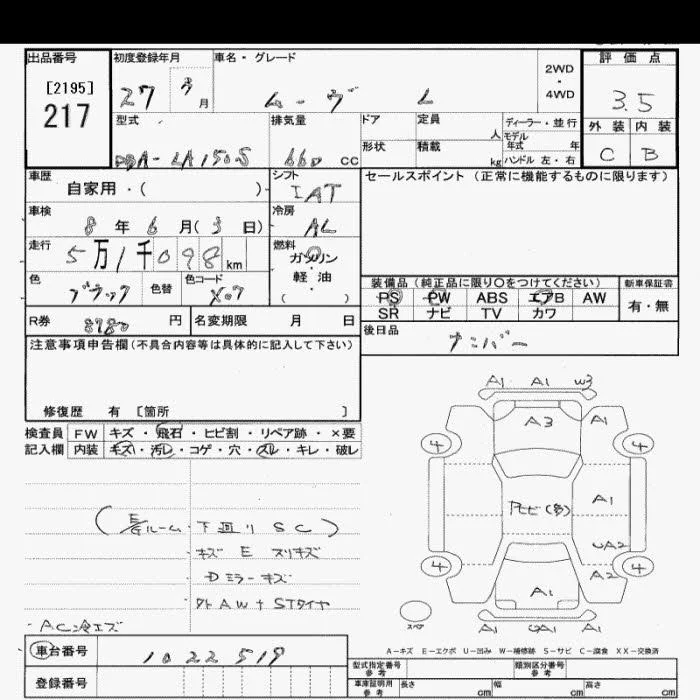 出品番号 初度登録年月 車名・グレード 評価点
[2195]
217
27 月 ムーヴ L
2WD
・
4WD
3.5
型式 排気量 ドア 定員 人 ディーラー・並行
モデル
年式 年
外装 内装
DBA-LA150S 660 CC 形状 積載 kg ハンドル 左・右
C B
車歴 自家用・( ) シフト IAT セールスポイント (正常に機能するものに限ります)
車検 8 年 6 月( 3 日) 冷房 AC
走行 5万1千098 km 燃料 ガソリン
・
軽油
( )
色 ブラック 色替 色コード X07
装備品 (純正品に限り○をつけてください) 新車保証書
PS PW ABS エアB AW 有・無
SR ナビ TV カワ
R券 8780 円 名変期限 月 日
後日品 ナンバー
注意事項申告欄(不具合内容等は具体的に記入して下さい)
修復歴 有 [箇所 ]
検査員 FW キズ・飛石・ヒビ割・リペア跡・×要
記入欄 内装 キズ・汚レ・コゲ・穴・スレ・キレ・破レ
A1 A1 W3
A3 A1
4 4
A1
UA2
4 4
A2
A1
A1 UA1 A1
スペア
下廻り SC)
キズ E スリキズ
Dミラーキズ
AW+STタイヤ
AC冷エズ
A-キズ E-エクボ U-凹み W-補修跡 S-サビ C-腐食 XX-交換済
車台番号 1022519
登録番号
型式指定番号
参考
類別区分番号
参考
車庫証明用
参考
長さ cm 幅 cm 高さ cm